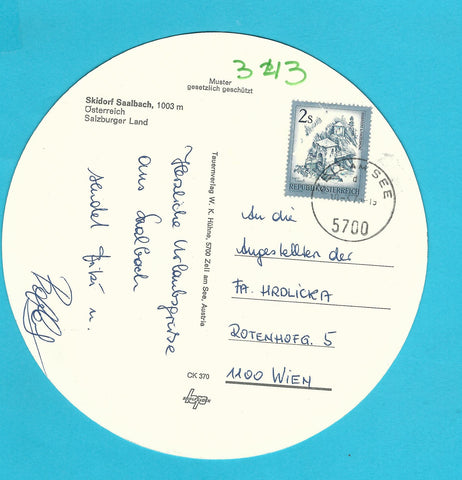 3213
Muster
gesetzlich geschützt
Skidorf Saalbach, 1003 m
Österreich
Salzburger Land
2s
REPUBLIK ÖSTERREICH
SEE
5700
Herzliche Urlaubsgrüsse
aus Saalbach
sendet
u.
Tauernverlag W. K. Hühne, 5700 Zell am See, Austria
An die
Angestellten der
FA. HRDLICKA
ROTENHOFG. 5
1100 WIEN
CK 370